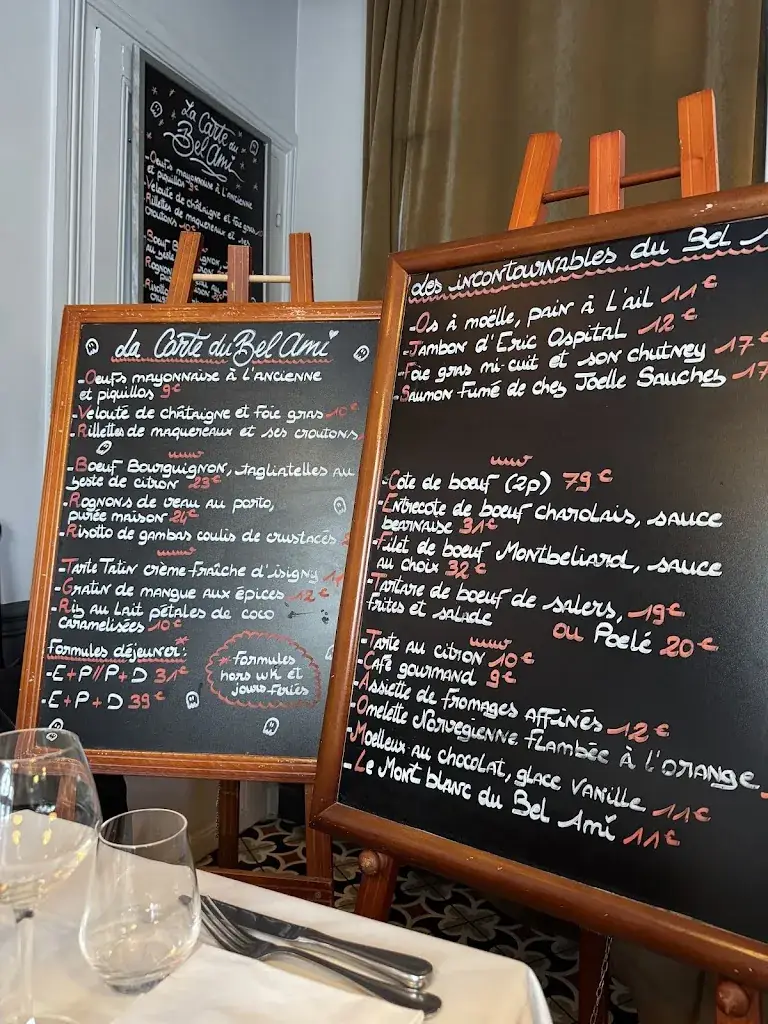 La Carte du
Bel Ami
-Oeufs mayonnaise à l'ancienne
et piquillos 9€
-Velouté de châtaigne et foie gras
-Rillettes de maquereaux et ses
croutons
La Carte du Bel Ami
-Oeufs mayonnaise à l'ancienne
et piquillos 9€
-Velouté de châtaigne et foie gras 10€
-Rillettes de maquereaux et ses croutons
-Boeuf Bourguignon, tagliatelles au
zeste de citron 23€
-Rognons de veau au porto,
purée maison 24€
-Risotto de gambas coulis de crustacés
-Tarte Tatin crème fraîche d'isigny 11
-Gratin de mangue aux épices 12€
-Riz au lait pétales de coco
caramélisées 10€
Formules déjeuner:*
-E+P//P+D 31€
-E+P+D 39€
*Formules
hors wk et
jours fériés
Les incontournables du Bel
-Os à moëlle, pain à l'ail 11€
-Jambon d'Eric Ospital 12€
-Foie gras mi-cuit et son chutney 17€
-Saumon Fumé de chez Joelle Sauches 17
-Cote de boeuf (2p) 79€
-Entrecote de boeuf charolais, sauce
bearnaise 31€
-Filet de boeuf Montbeliard, sauce
au choix 32€
-Tartare de boeuf de salers, 19€
frites et salade ou Poelé 20€
-Tarte au citron 10€
-Café gourmand 9€
-Assiette de fromages affinés 12€
-Omelette Norvegienne flambée à l'orange
-Moelleux au chocolat, glace vanille 11€
-Le Mont blanc du Bel Ami 11€